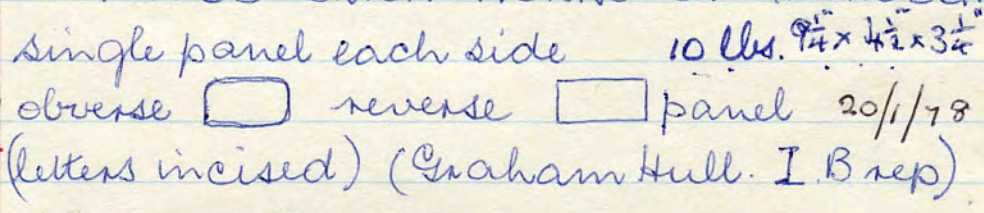 single panel each side 10 lbs. 9¼" × 4½" × 3¼"
obverse reverse panel 20/1/78
(letters incised) (Graham Hull. I.B rep)